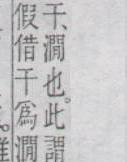 干、澗也。此謂
假借干爲澗